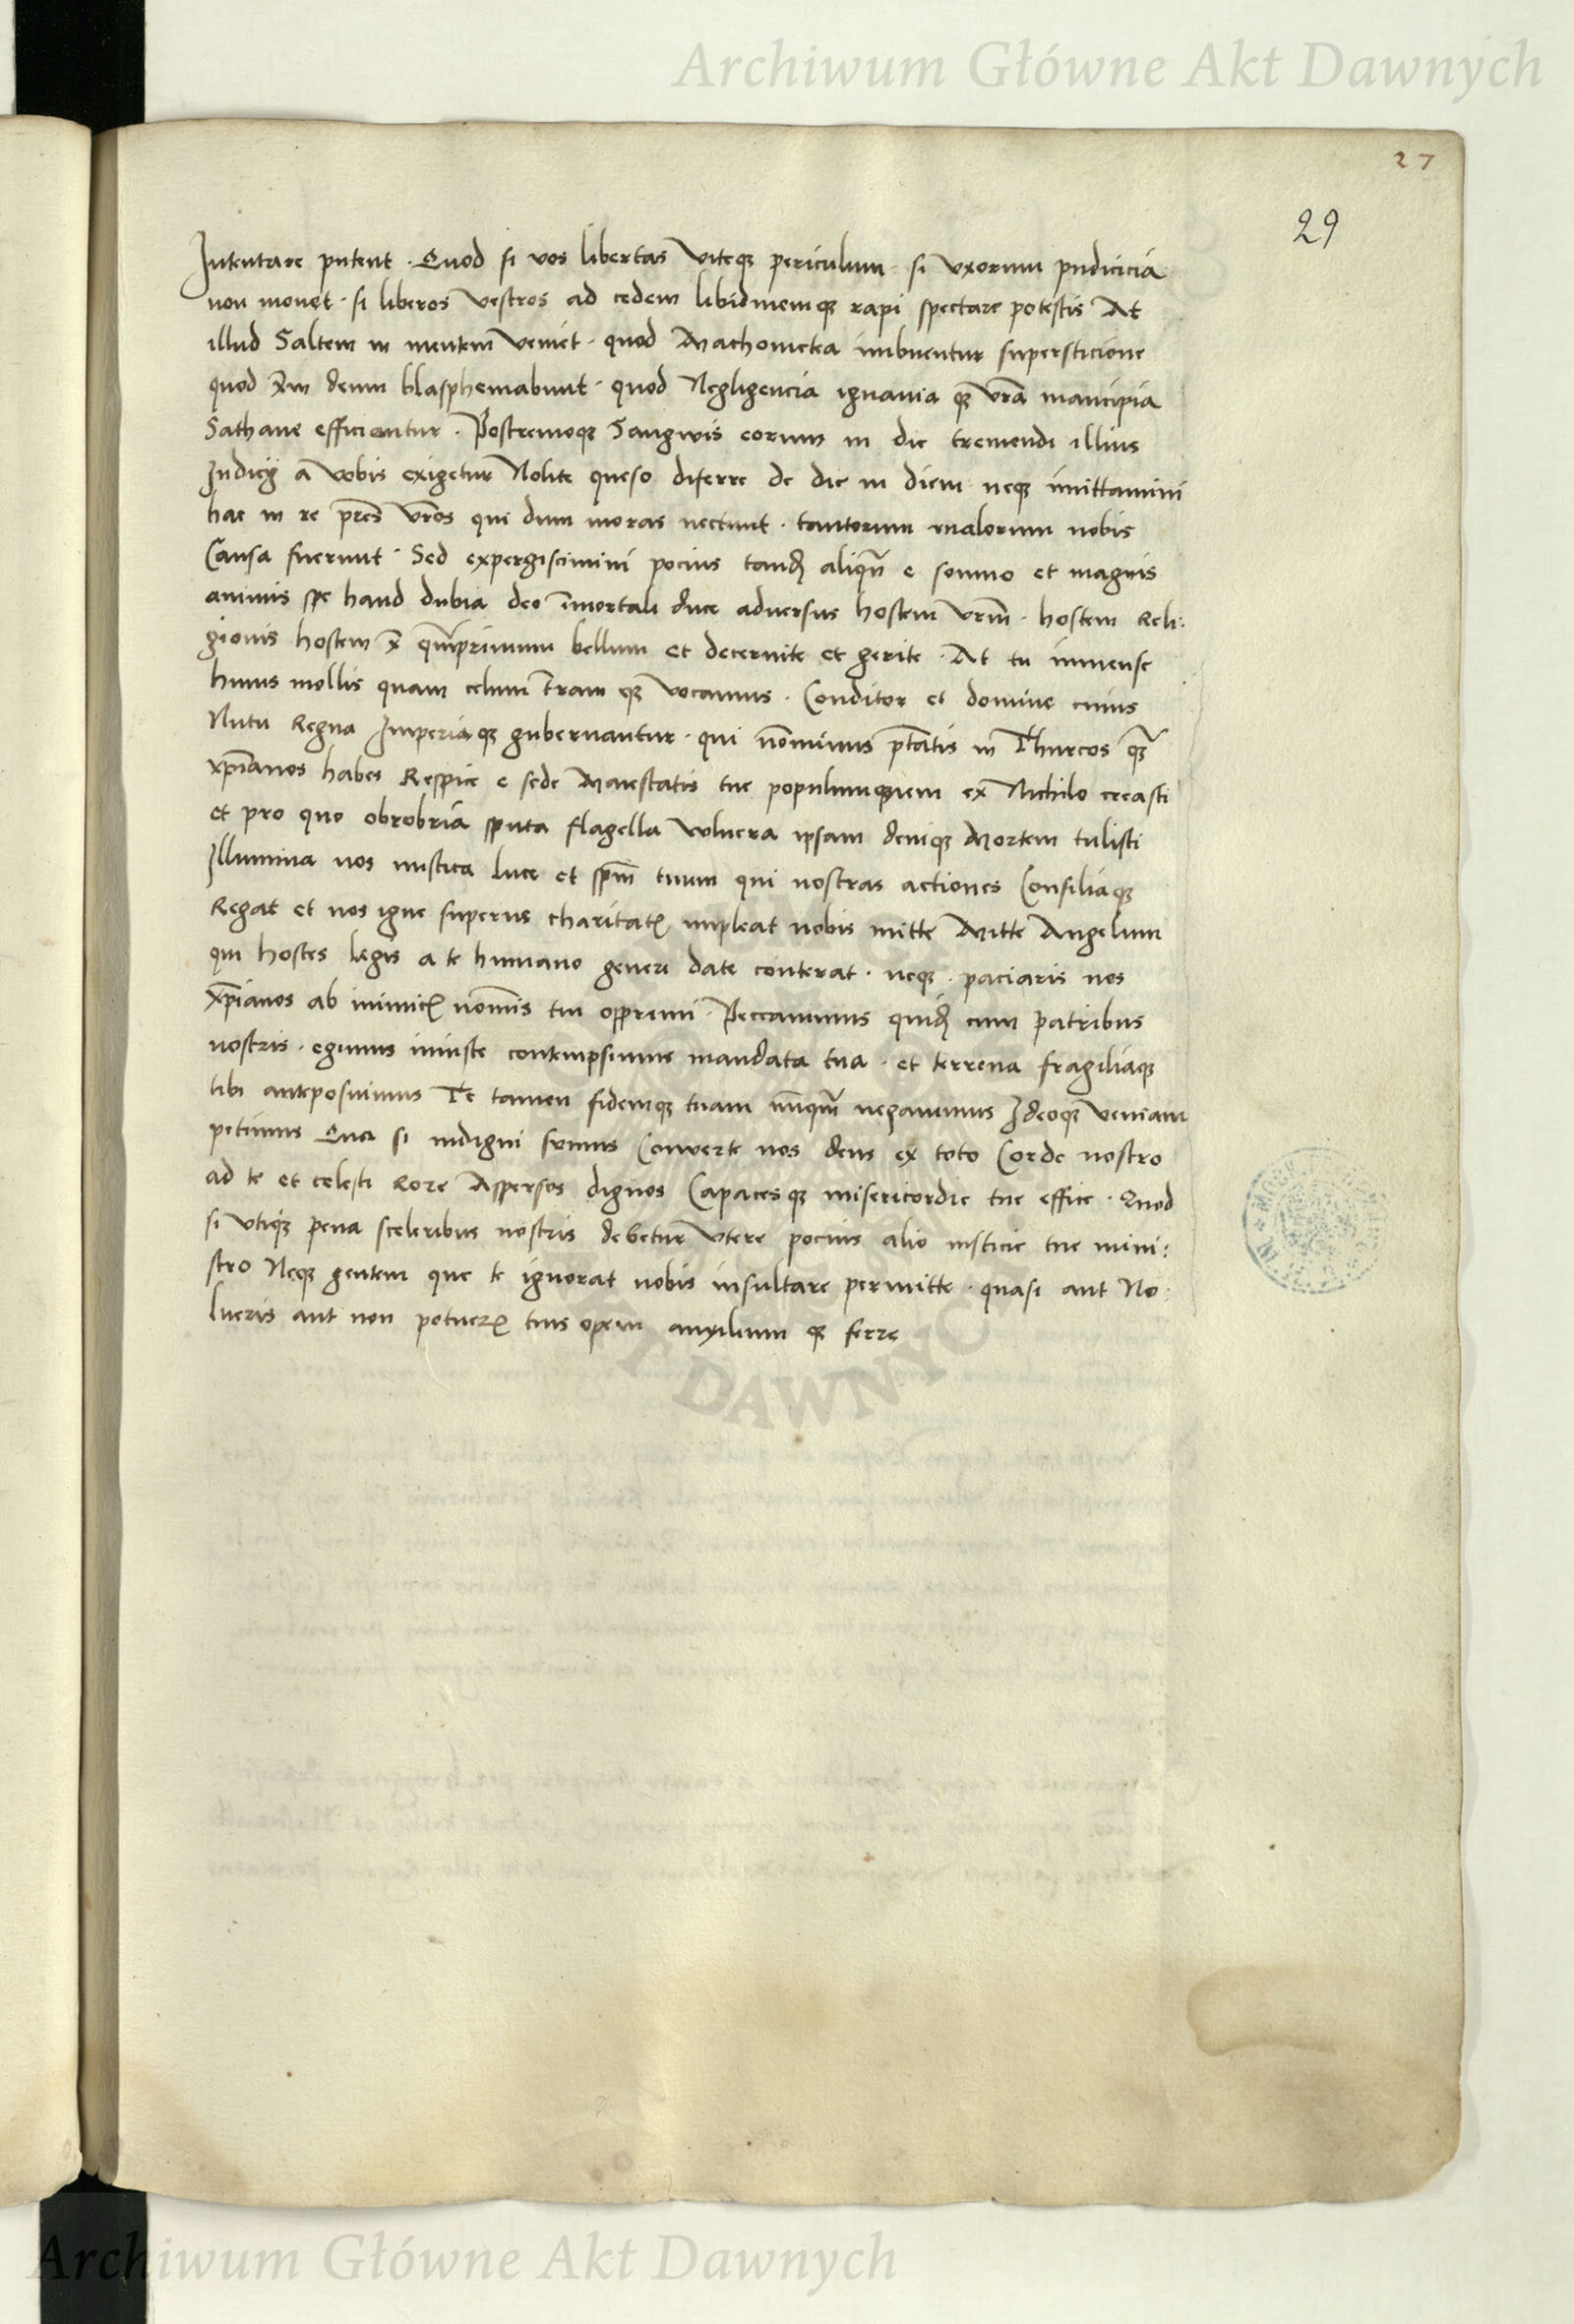 Archiwum Główne Akt Dawnych
27
29
Intentare putent · Quod si vos libertas viteqꝫ periculum · si vxorum pudicicia
non mouet · si liberos vestros ad cedem libidinemqꝫ rapi spectare potestis At
illud Saltem in mentem veniet · quod Machometea imbuentur supersticione
quod xp̄m deum blasphemabunt · quod Negligencia ignauia qꝫ vr̄a mancipia
Sathane efficientur · Postremoqꝫ Sangwis eorum in die tremendi illius
Iudicij a vobis exigetur Nolite queso diferre de die in diem neqꝫ imittamini
hac in re pr̄es vr̄os qui dum moras nectunt · tantorum malorum nobis
Causa fuerunt · Sed expergiscimini pocius tandꝫ aliqn̄ e somno et magnis
animis spe haud dubia deo īmortali duce aduersus hostem vrm̄ · hostem Reli:
gionis hostem xp̄i qm̄primum bellum et decernite et gerite · At tu inmense
huius mollis quam celum t̄ram qꝫ vocamus · Conditor et domine cuius
Nutu Regna Imperia qꝫ gubernantur · qui nōminus ptātis in Thurcos qꝫ̄
xpīanos habes Respice e sede Maiestatis tue populum quem ex Nichilo creasti
et pro quo obrobria sputa flagella vulnera ipsam deniqꝫ Mortem tulisti
Illumina nos mistica luce et spm̄ tuum qui nostras actiones Consiliaqꝫ
Regat et nos igne superne charitatꝭ impleat nobis mitte Mitte Angelum
qui hostes legis a te humano genere date conterat · neqꝫ · paciaris nos
xpīanos ab inimicꝭ nom̄is tui opprimi · Peccauimus quidꝫ cum patribus
nostris · egimus iniuste contempsimus mandata tua · et terrena fragiliaqꝫ
tibi anteposuimus Te tamen fidemqꝫ tuam nūqm̄ negauimus Ideoqꝫ veniam
petimus Qua si indigni sumus Conuerte nos deus ex toto Corde nostro
ad te et celesti Rore Aspersos dignos Capaces qꝫ misericordie tue effice · Quod
si vtiqꝫ pena sceleribus nostris debetur vtere pocius alio iusticie tue mini:
stro Neqꝫ gentem que te ignorat nobis insultare permitte · quasi aut No
lueris aut non potuerꝭ tuis opem auxilium qꝫ ferre
DAWNYC
Archiwum Główne Akt Dawnych